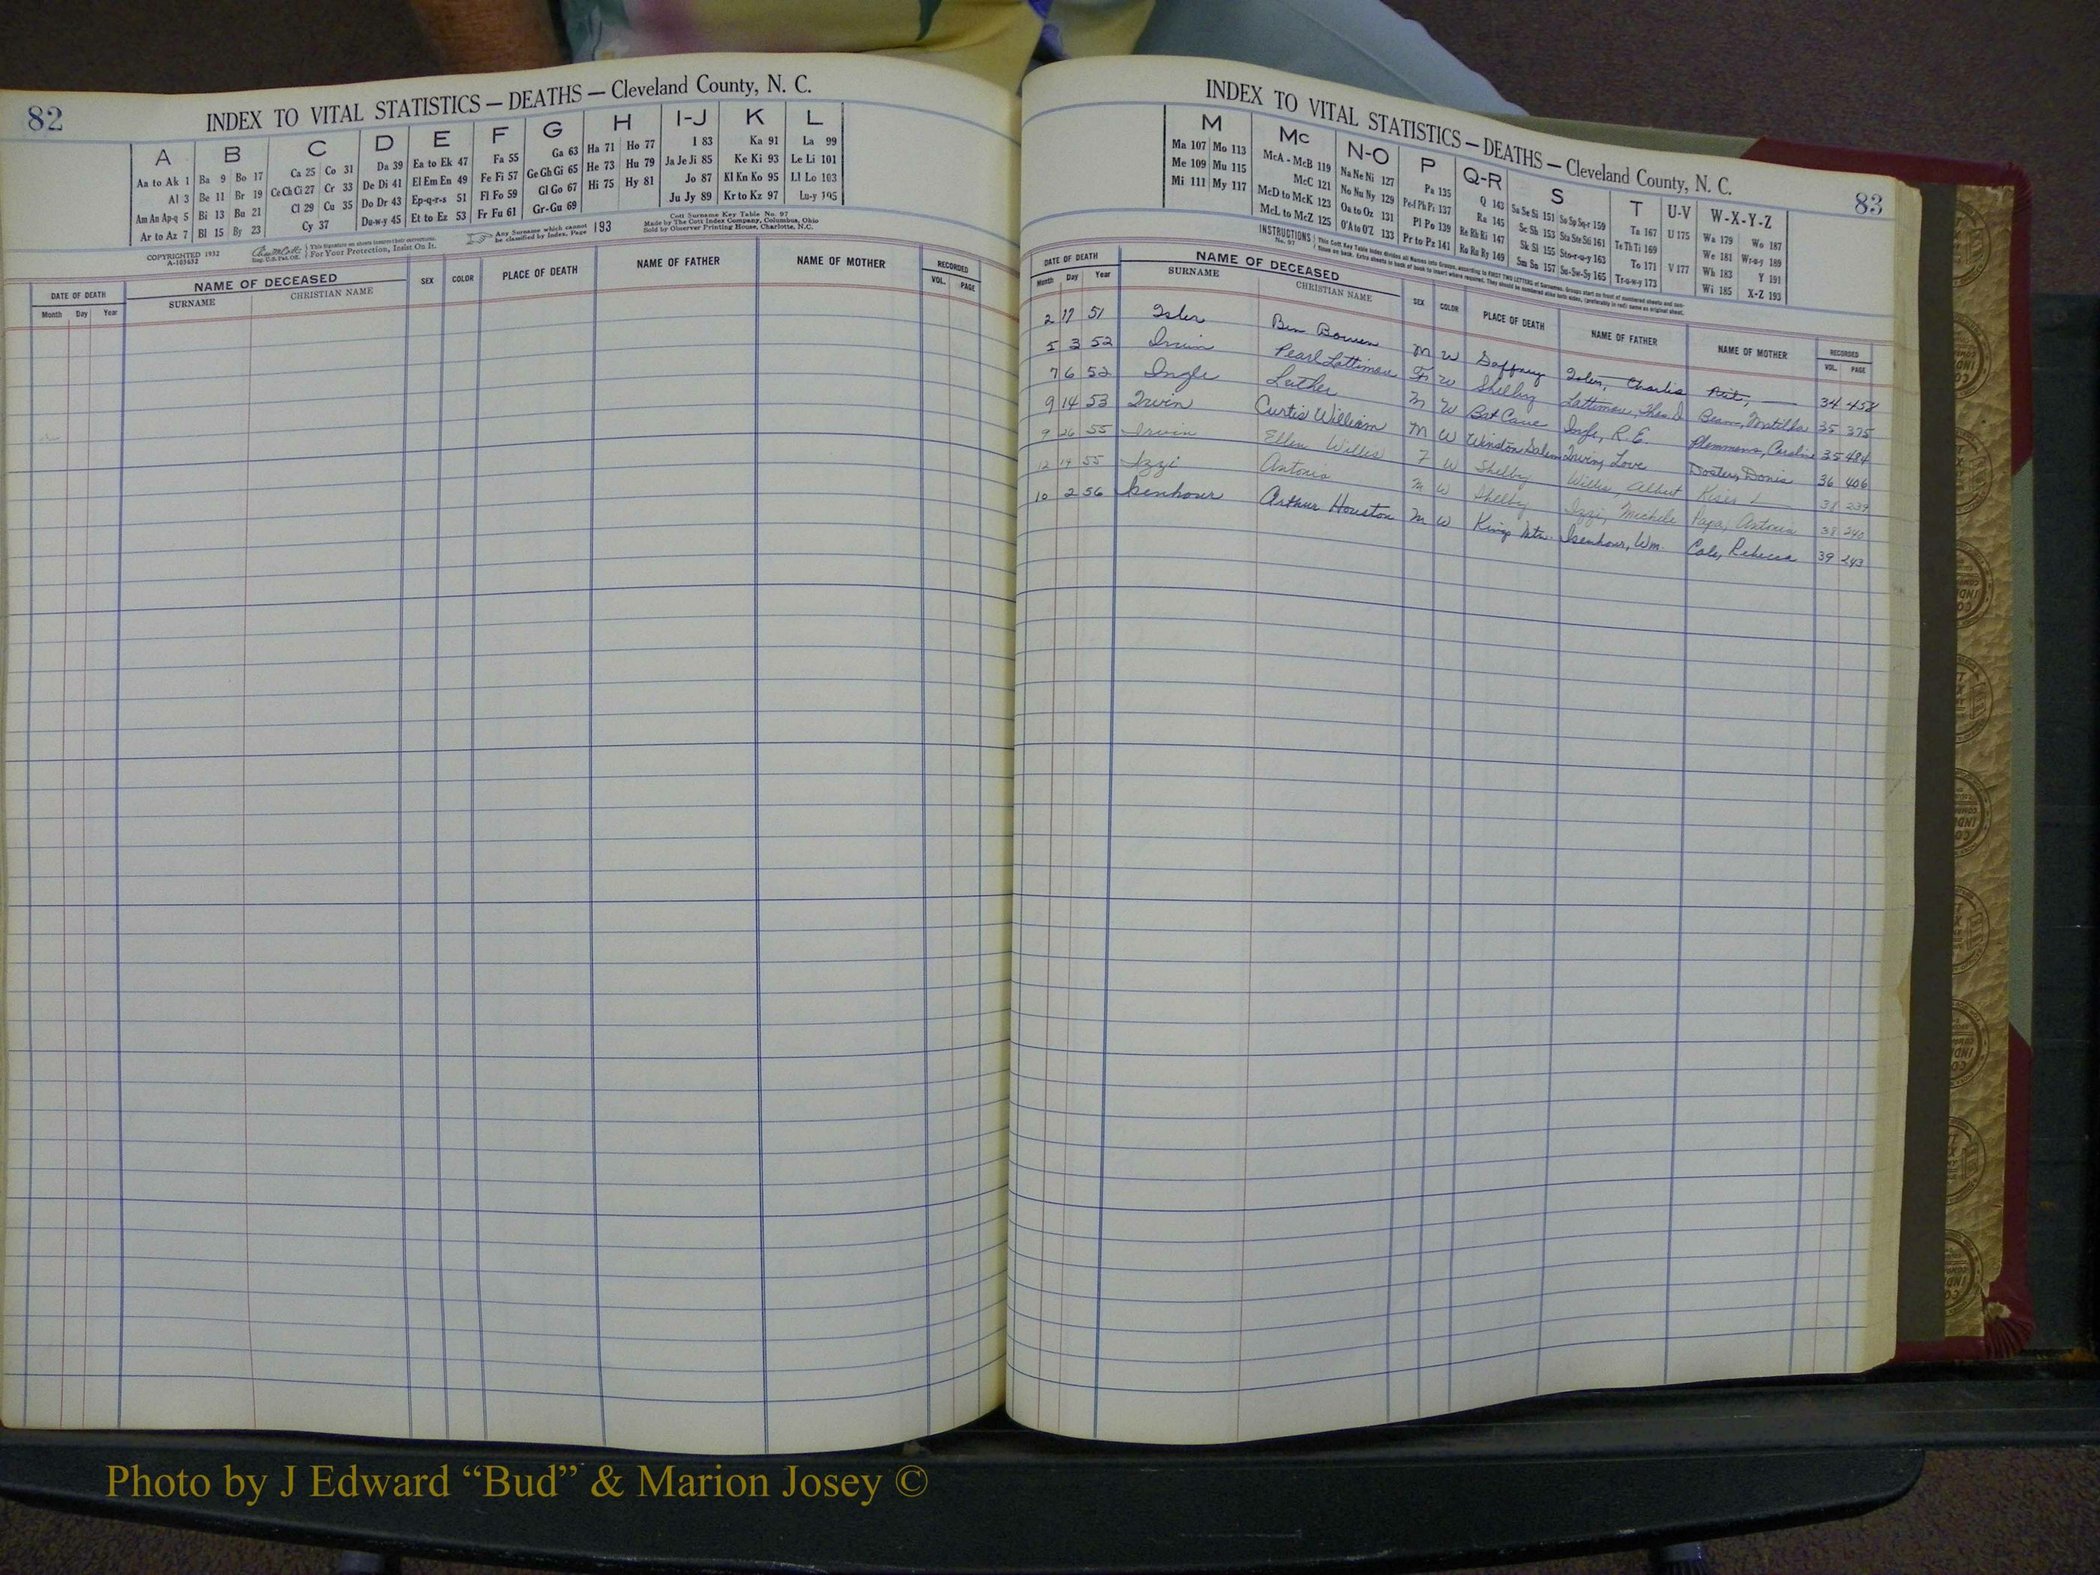 82
INDEX TO VITAL STATISTICS — DEATHS — Cleveland County, N. C.
A B C D E F G H I-J K L
Aa to Ak 1 Ba 9 Bo 17 Ca 25 Co 31 Da 39 Ea to Ek 47 Fa 55 Ga 63 Ha 71 Ho 77 I 83 Ka 91 La 99
Al 3 Be 11 Br 19 Ce Ch Ci 27 Cr 33 De Di 41 El Em En 49 Fe Fi 57 Ge Gh Gi 65 He 73 Hu 79 Ja Je Ji 85 Ke Ki 93 Le Li 101
Am An Ap-q 5 Bi 13 Bu 21 Cl 29 Cu 35 Do Dr 43 Ep-q-r-s 51 Fl Fo 59 Gl Go 67 Hi 75 Hy 81 Jo 87 Kl Kn Ko 95 Ll Lo 103
Ar to Az 7 Bl 15 By 23 Cy 37 Du-w-y 45 Et to Ez 53 Fr Fu 61 Gr-Gu 69 Ju Jy 89 Kr to Kz 97 Lu-y 105
COPYRIGHTED 1932
A-103632
This Signature on sheets insures their correctness.
For Your Protection, Insist On It.
Any Surname which cannot be classified by Index, Page 193
Cott Surname Key Table No. 97
Made by The Cott Index Company, Columbus, Ohio
Sold by Observer Printing House, Charlotte, N.C.
DATE OF DEATH NAME OF DECEASED SEX COLOR PLACE OF DEATH NAME OF FATHER NAME OF MOTHER RECORDED
Month Day Year SURNAME CHRISTIAN NAME VOL. PAGE
83
INDEX TO VITAL STATISTICS — DEATHS — Cleveland County, N. C.
M Mc N-O P Q-R S T U-V W-X-Y-Z
Ma 107 Mo 113 McA - McB 119 Na Ne Ni 127 Pa 135 Q 143 Sa Se Si 151 So Sp Sq-r 159 Ta 167 U 175 Wa 179 Wo 187
Me 109 Mu 115 McC 121 No Nu Ny 129 Pe-f Ph Pi 137 Ra 145 Sc Sh 153 Sta Ste Sti 161 Te Th Ti 169 We 181 Wr-u-y 189
Mi 111 My 117 McD to McK 123 Oa to Oz 131 Pl Po 139 Re Rh Ri 147 Sk Sl 155 Sto-r-u-y 163 To 171 V 177 Wh 183 Y 191
McL to McZ 125 O'A to O'Z 133 Pr to Pz 141 Ro Ru Ry 149 Sm Sn 157 Su-Sw-Sy 165 Tr-u-w-y 173 Wi 185 X-Z 193
INSTRUCTIONS No. 97
DATE OF DEATH NAME OF DECEASED SEX COLOR PLACE OF DEATH NAME OF FATHER NAME OF MOTHER RECORDED
Month Day Year SURNAME CHRISTIAN NAME VOL. PAGE
2 17 51 Isler Ben Bowen M W Gaffney Isler, Charlie 34 458
5 3 52 Irvin Pearl Lattimore F W Shelby Lattimore, Thos. D Beam, Matilda 35 375
7 6 52 Ingle Luther M W Bat Cave Ingle, R. E. Plemmons, Caroline 35 484
9 14 53 Irvin Curtis William M W Winston Salem Irvin, Love Doster, Donis 36 406
9 26 55 Irvin Ellen Willis F W Shelby Willis, Albert Kiser 38 239
12 19 55 Izzi Antonio M W Shelby Izzi, Michele Papa, Antonia 38 240
10 2 56 Isenhour Arthur Houston M W Kings Mtn. Isenhour, Wm. Cole, Rebecca 39 243
Photo by J Edward “Bud” & Marion Josey ©